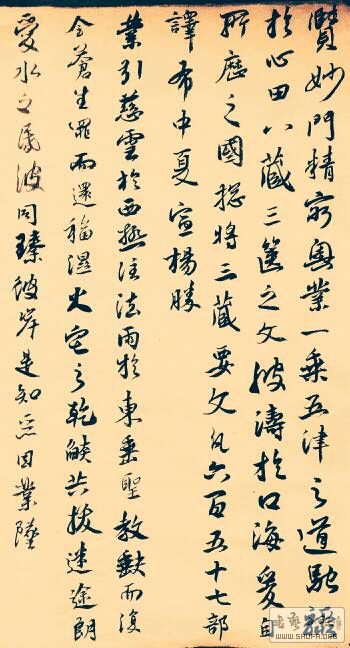 賢妙門精窮奧業一乘五律之道馳驟
於心田八藏三篋之文波濤於口海爰自
所歷之國總將三藏要文凡六百五十七部
譯布中夏宣揚勝
業引慈雲於西極注法雨於東垂聖教缺而復
全蒼生罪而還福濕火宅之乾焰共拔迷途朗
愛水之昏波同臻彼岸是知惡因業墜